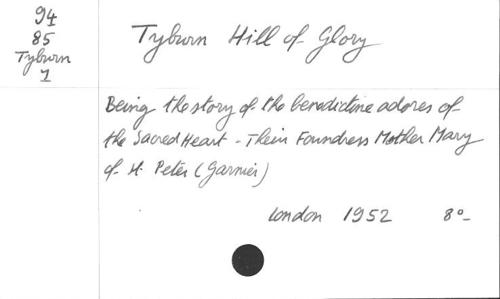 94
85
Tyburn
1
Tyburn Hill of Glory
Being the story of the benedictine adores of
the Sacred Heart - Their Foundress Mother Mary
of St. Peter (Garnier)
London 1952 8°-